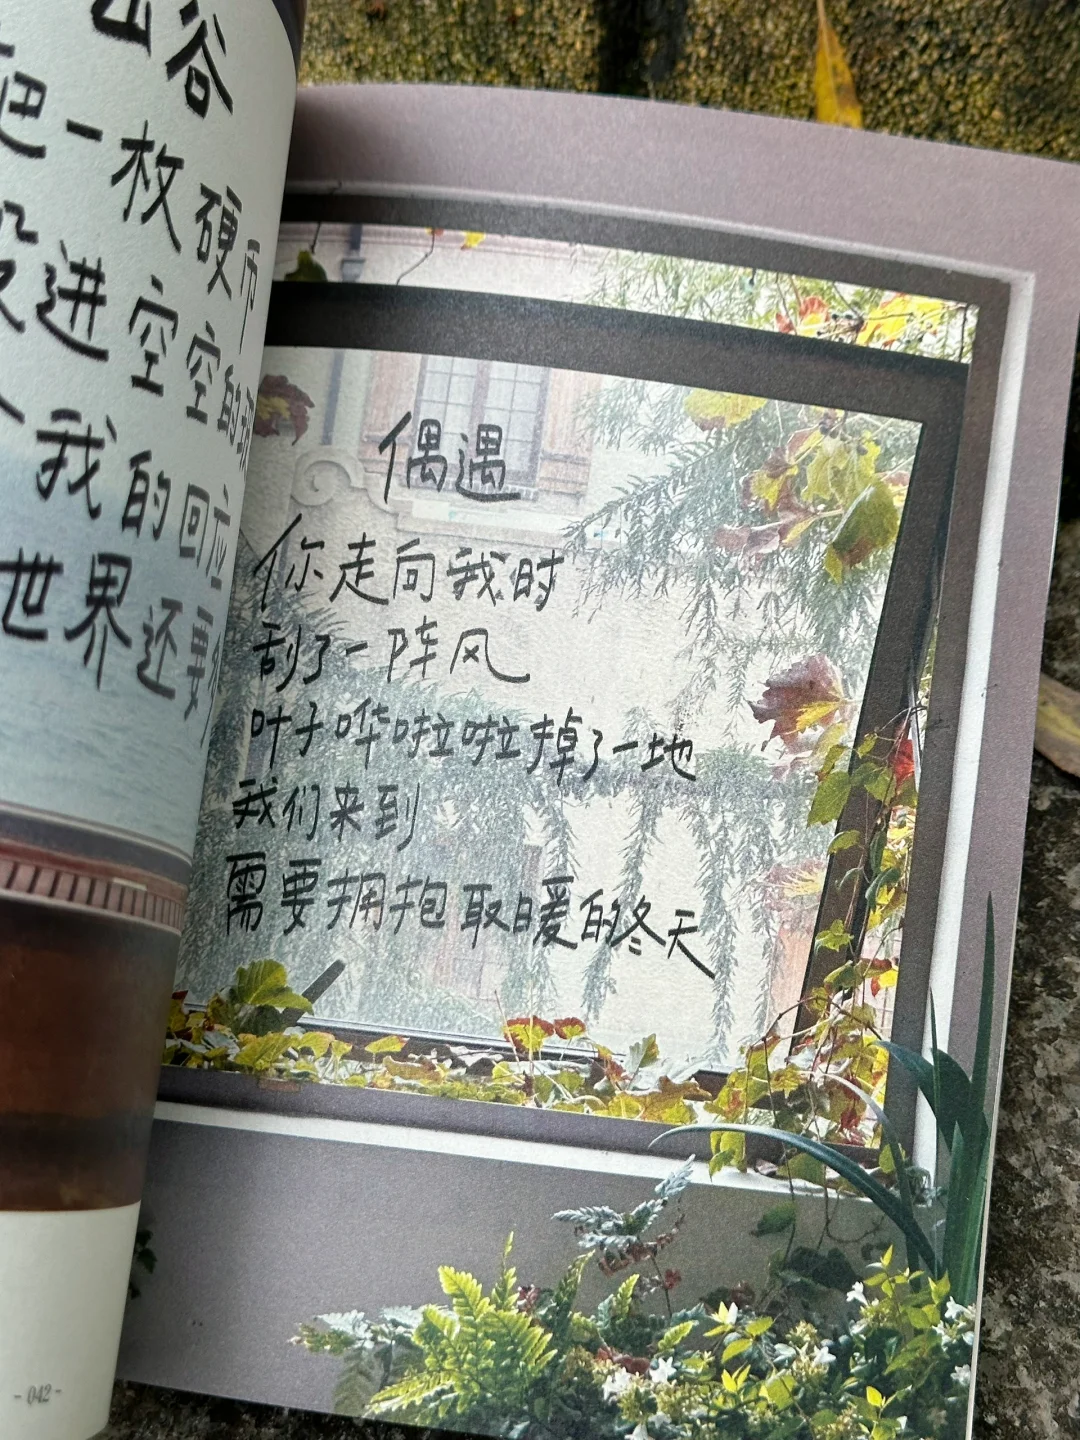 山谷
把一枚硬币
投进空空的
我的回应
世界还要
- 042 -
偶遇
你走向我时
刮了一阵风
叶子哗啦啦掉了一地
我们来到
需要拥抱取暖的冬天